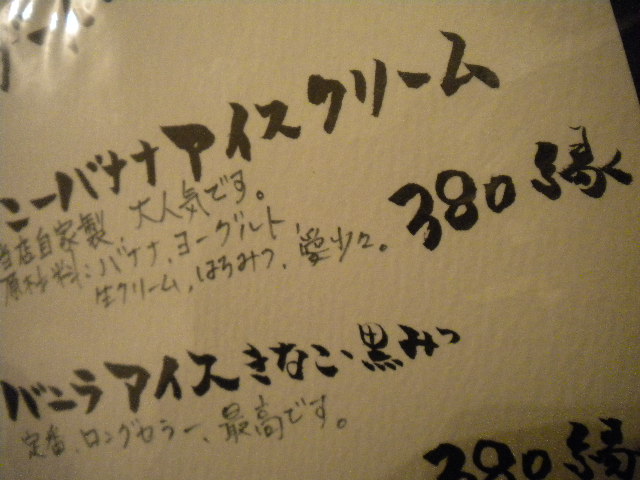 ニーバナナアイスクリーム
380縁
当店自家製、大人気です。
原材料:バナナ、ヨーグルト、
生クリーム、はちみつ、愛少々。
バニラアイスきなこ、黒みつ
定番、ロングセラー、最高です。
380縁